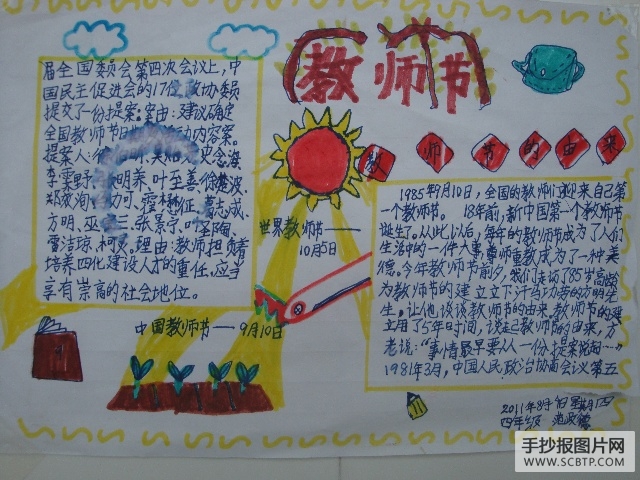 教师节
教师节的由来
届全国委员会第四次会议上,中
国民主促进会的17位政协委员
提交了一份提案。案由:建议确定
全国教师节日期及活动内容案。
提案人:
李霁野 明养 叶至善
方明、巫
雷洁琼、柯灵。理由:教师担负着
培养四化建设人才的重任,应当
享有崇高的社会地位。
世界教师节——
10月5日
中国教师节——9月10日
1985年9月10日,全国的教师们迎来自己第
一个教师节。18年前,新中国第一个教师节
诞生。从此以后,每年的教师节成为了人们
生活中的一件大事,尊师重教成为了一种美
德。今年教师节前夕,我们走访了85岁高龄
为教师节的建立立下汗马功劳的方明先
生。让他谈谈教师节的由来。教师节的建
立用了5年时间,谈起教师节的由来,方
老说:“事情最早要从一份提案说起……”
1981年3月,中国人民政治协商会议第五
2011年8月
四年级
手抄报图片网
WWW.SCBTP.COM